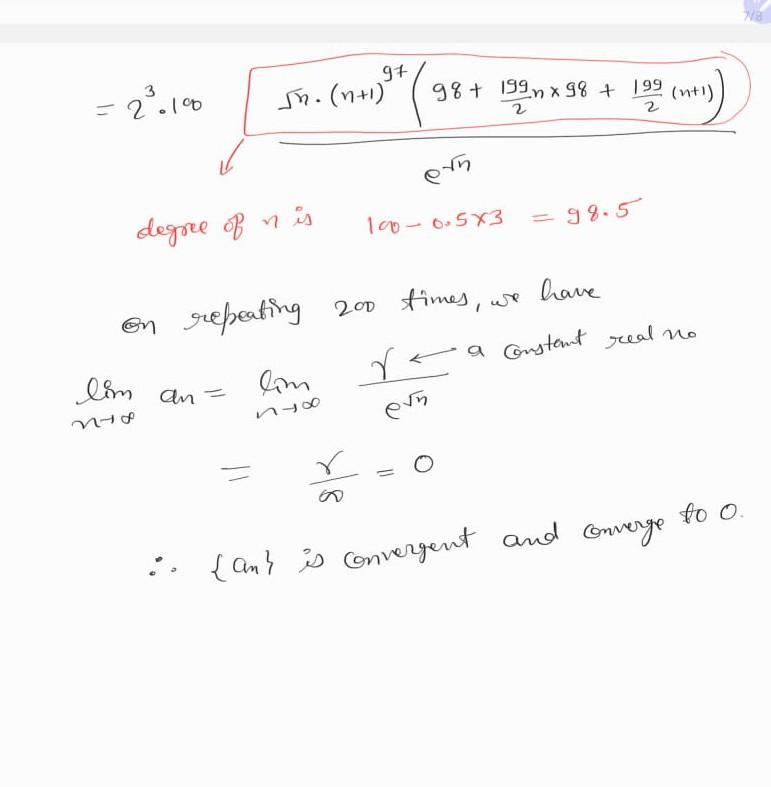 7/8
= 2^3 . 100 √n . (n+1)^97 (98 + 199/2 n x 98 + 199/2 (n+1))
e^√n
degree of n is 100 - 0.5 x 3 = 98.5
on repeating 200 times, we have
lim n→∞ an = lim n→∞ r / e^√n ← a constant real no
= r/∞ = 0
∴ {an} is convergent and converge to 0.